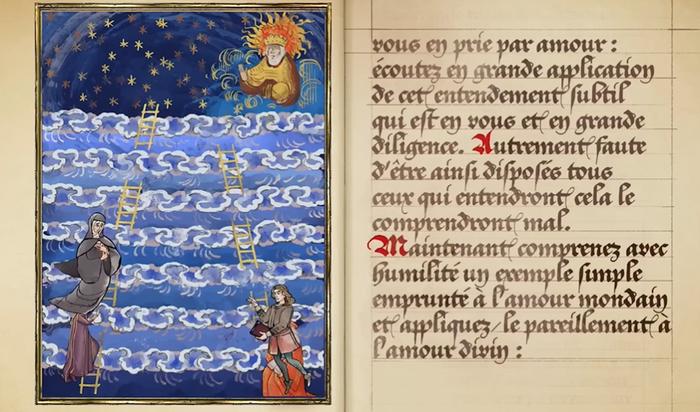 vous en prie par amour :
écoutez en grande application
de cet entendement subtil
qui est en vous et en grande
diligence. Autrement faute
d'être ainsi disposés tous
ceux qui entendront cela le
comprendront mal.
Maintenant comprenez avec
humilité un exemple simple
emprunté à l'amour mondain
et appliquez-le pareillement à
l'amour divin :